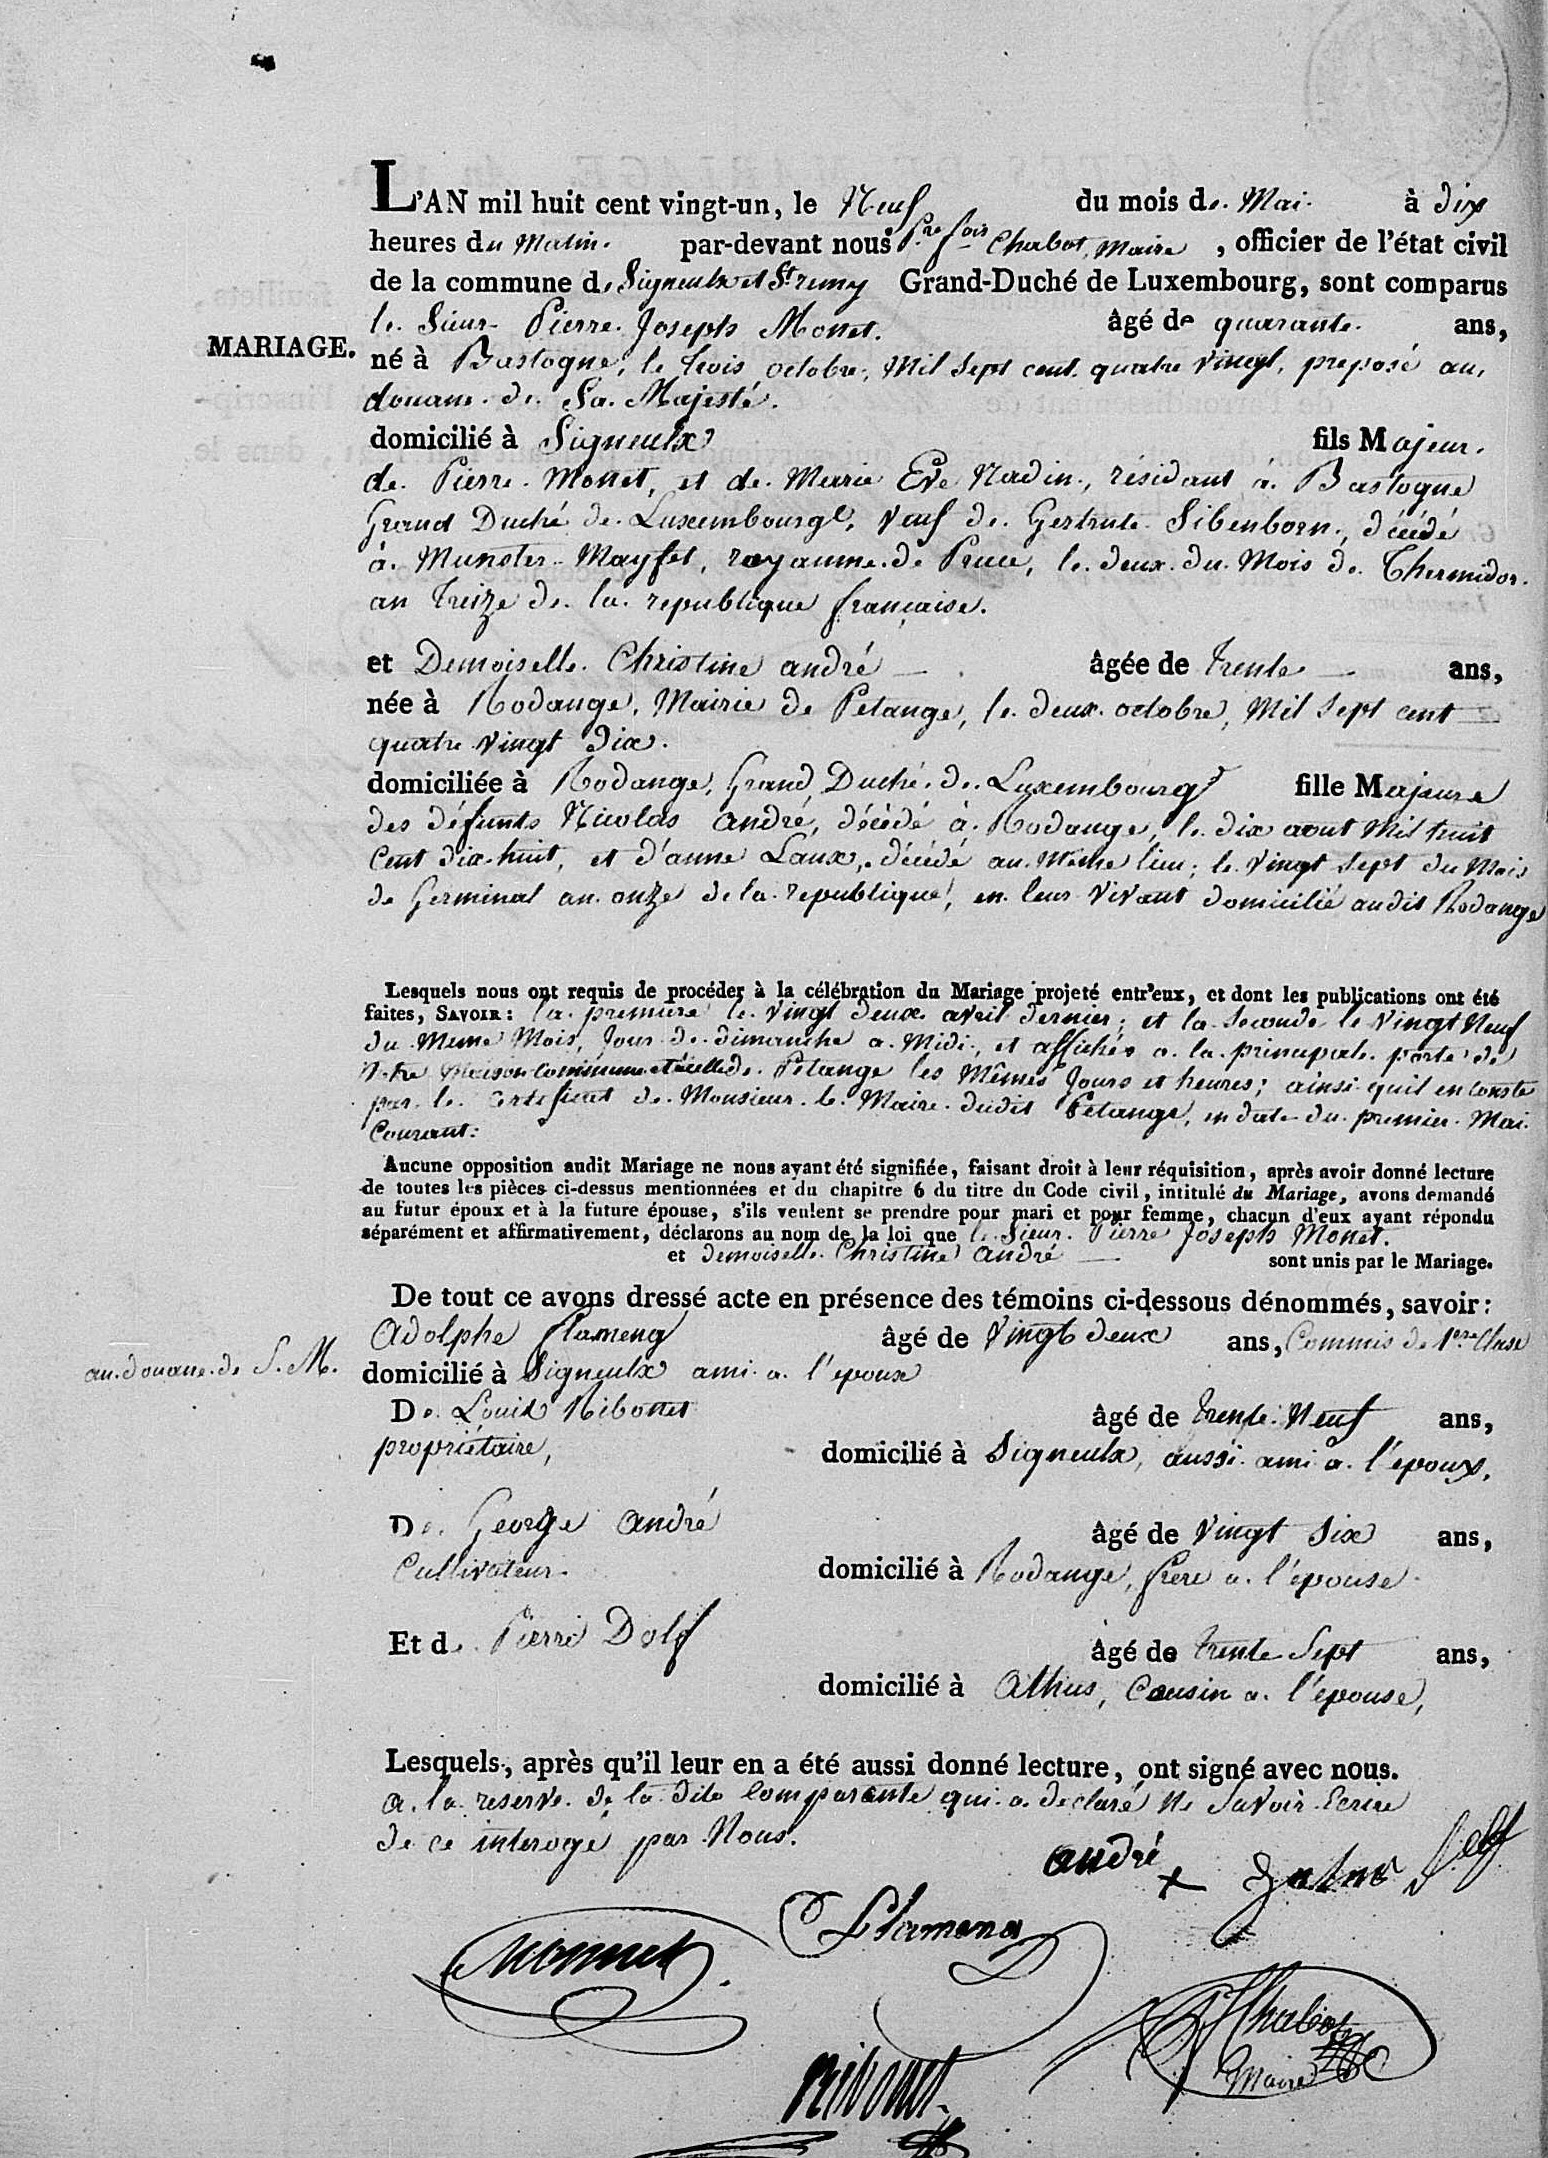 L'AN mil huit cent vingt-un, le Neuf du mois de Mai à dix
heures du Matin par-devant nous Pre. fois Chabot, Maire, officier de l'état civil
de la commune de Signeulx et St remy Grand-Duché de Luxembourg, sont comparus
le Sieur Pierre Joseph Monet. âgé de quarante ans,
MARIAGE.
né à Bastogne, le trois octobre, Mil Sept cent quatre vingt, preposé au
douane de Sa Majesté.
domicilié à Signeulx fils Majeur.
de Pierre Monet, et de Marie Eve Nadin, résidant à Bastogne
Grand Duché de Luxembourg, Veuf de Gertrute Sibenborn, décédé
à Munster-Mayfet, royaume de Pruce, le deux du Mois de Thermidor
an treize de la republique française.
et Demoiselle Christine andré âgée de trente ans,
née à Rodange, Mairie de Petange, le deux octobre, Mil Sept cent
quatre vingt dix.
domiciliée à Rodange, Grand Duché de Luxembourg fille Majeure
des défunts Nicolas andré, décédé à Rodange, le dix aout Mil huit
Cent dix-huit, et d'anne Laux, décédé au même lieu; le vingt Sept du Mois
de Germinal an onze de la republique, en leur vivant domicilié audit Rodange
Lesquels nous ont requis de procéder à la célébration du Mariage projeté entr'eux, et dont les publications ont été
faites, SAVOIR: la premiere le vingt deux avril dernier; et la Seconde le vingt Neuf
du Meme Mois, Jour de dimanche a Midi, et affichés a la principale porte de
Notre Maison Commune et à celle de Petange les Mêmes Jours et heures; ainsi quil en conste
par le Certificat de Monsieur le Maire dudit Petange, en date du premier Mai
Courant:
Aucune opposition audit Mariage ne nous ayant été signifiée, faisant droit à leur réquisition, après avoir donné lecture
de toutes les pièces ci-dessus mentionnées et du chapitre 6 du titre du Code civil, intitulé du Mariage, avons demandé
au futur époux et à la future épouse, s'ils veulent se prendre pour mari et pour femme, chacun d'eux ayant répondu
séparément et affirmativement, déclarons au nom de la loi que le Sieur Pierre Joseph Monet.
et demoiselle Christine andré sont unis par le Mariage.
De tout ce avons dressé acte en présence des témoins ci-dessous dénommés, savoir:
Adolphe flameng âgé de Vingt deux ans, Commis de 1ere Classe
au douane de S. M.
domicilié à Signeulx ami a l'epoux
De Louis Nibonet âgé de trente Neuf ans,
propriétaire, domicilié à Signeulx, aussi ami a l'époux,
De George andré âgé de Vingt Six ans,
Cultivateur domicilié à Rodange, frere a l'épouse
Et de Pierre Dolf âgé de trente Sept ans,
domicilié à Athus, Cousin a l'épouse,
Lesquels, après qu'il leur en a été aussi donné lecture, ont signé avec nous.
a la reserve de la dite Comparante qui a declaré Ne Savoir Ecrire
de ce interogé par Nous.
andré +
Flameng
Monnet
Chabot
Maire
Nibonet